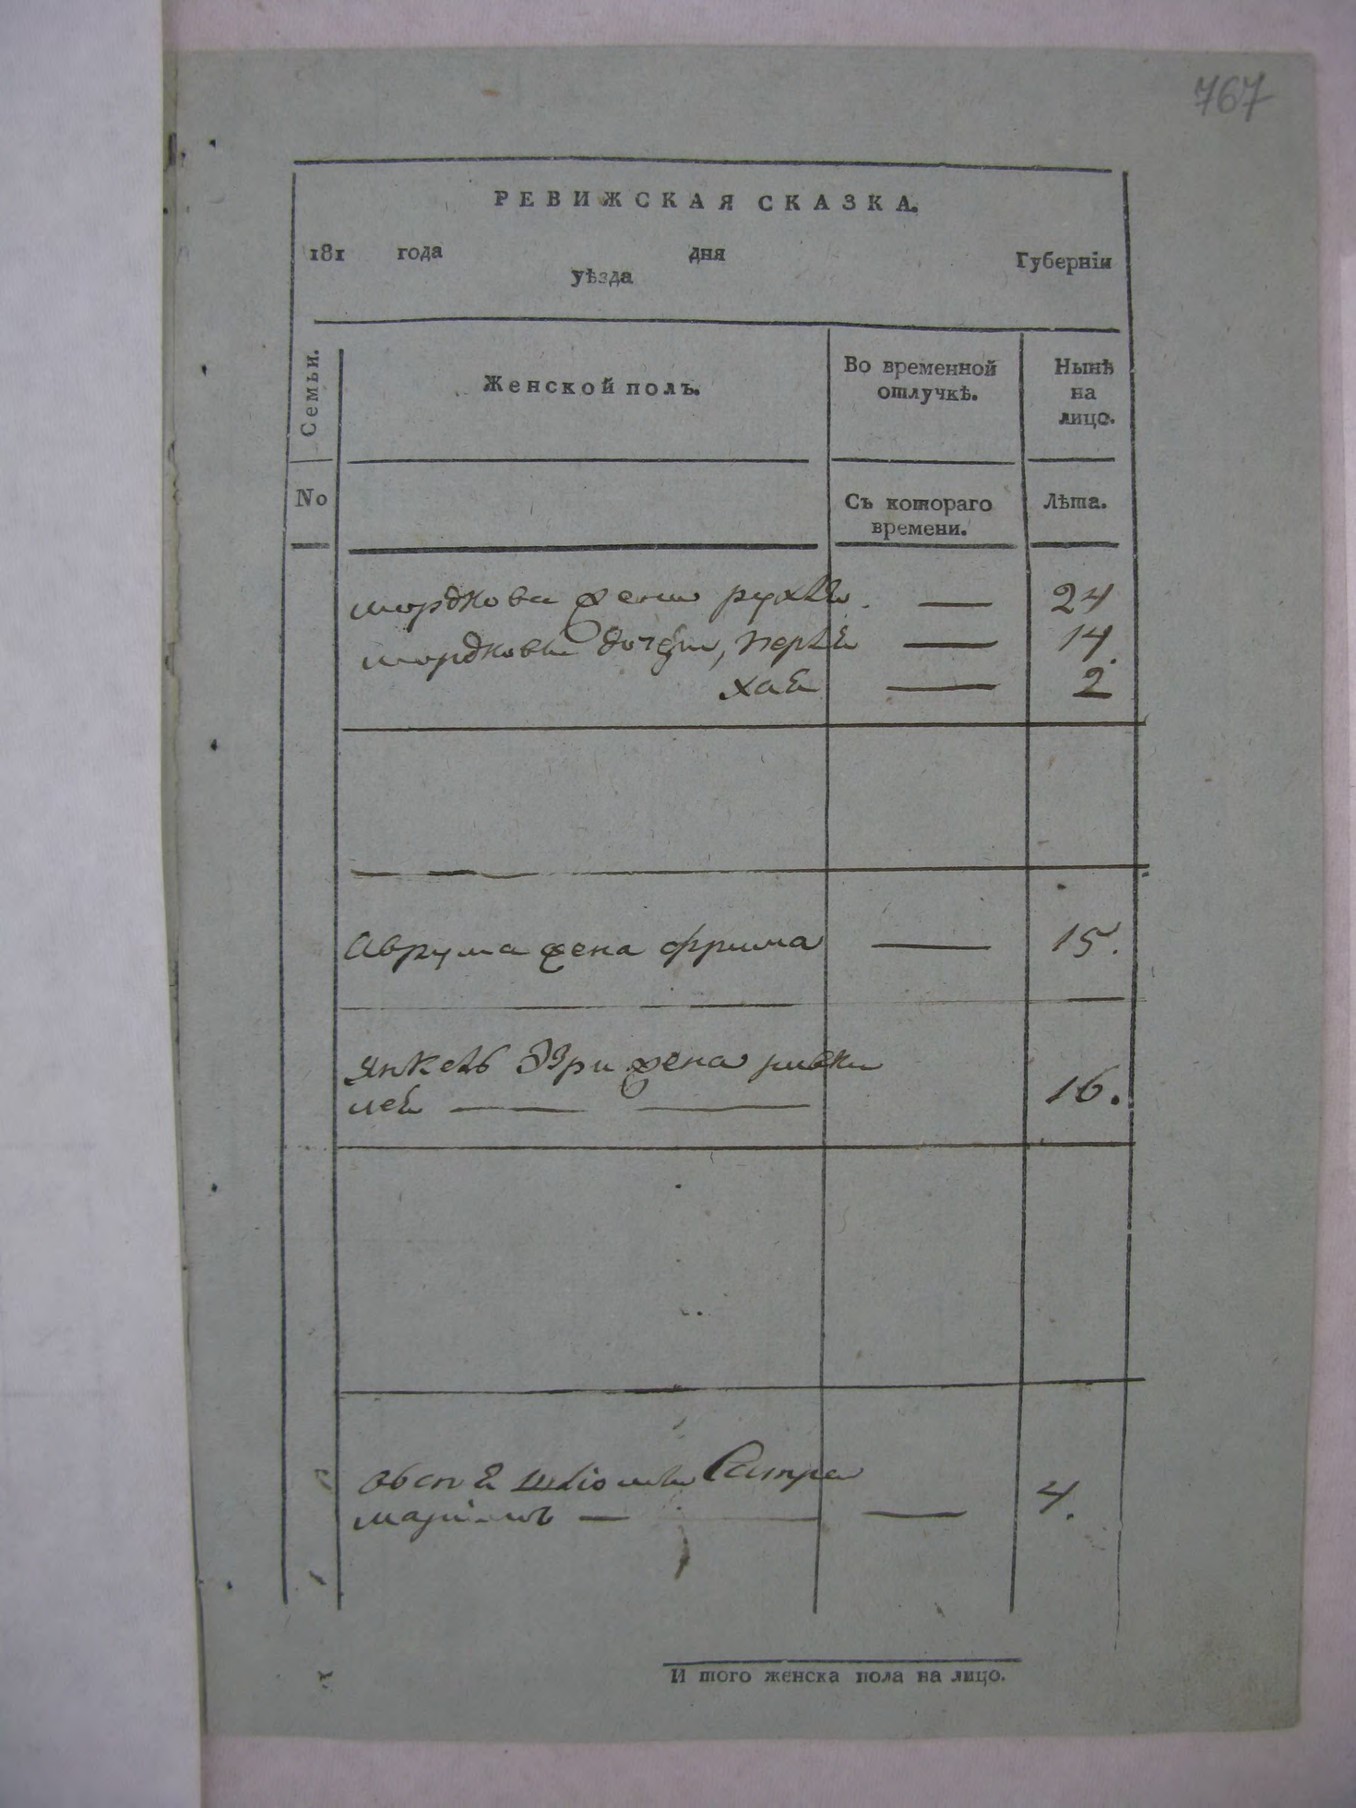 767
РЕВИЖСКАЯ СКАЗКА.
181 года дня Губерніи
уѣзда
Семьи. Женской полъ. Во временной отлучкѣ. Нынѣ на лицо.
No Съ котораго времени. Лѣта.
мордкова жена рухля — 24
мордковы дочери, перля — 14.
хая — 2
Аврума жена фрима — 15.
Янкель жена ривки
лея — — 16.
— — 4.
И того женска пола на лицо.